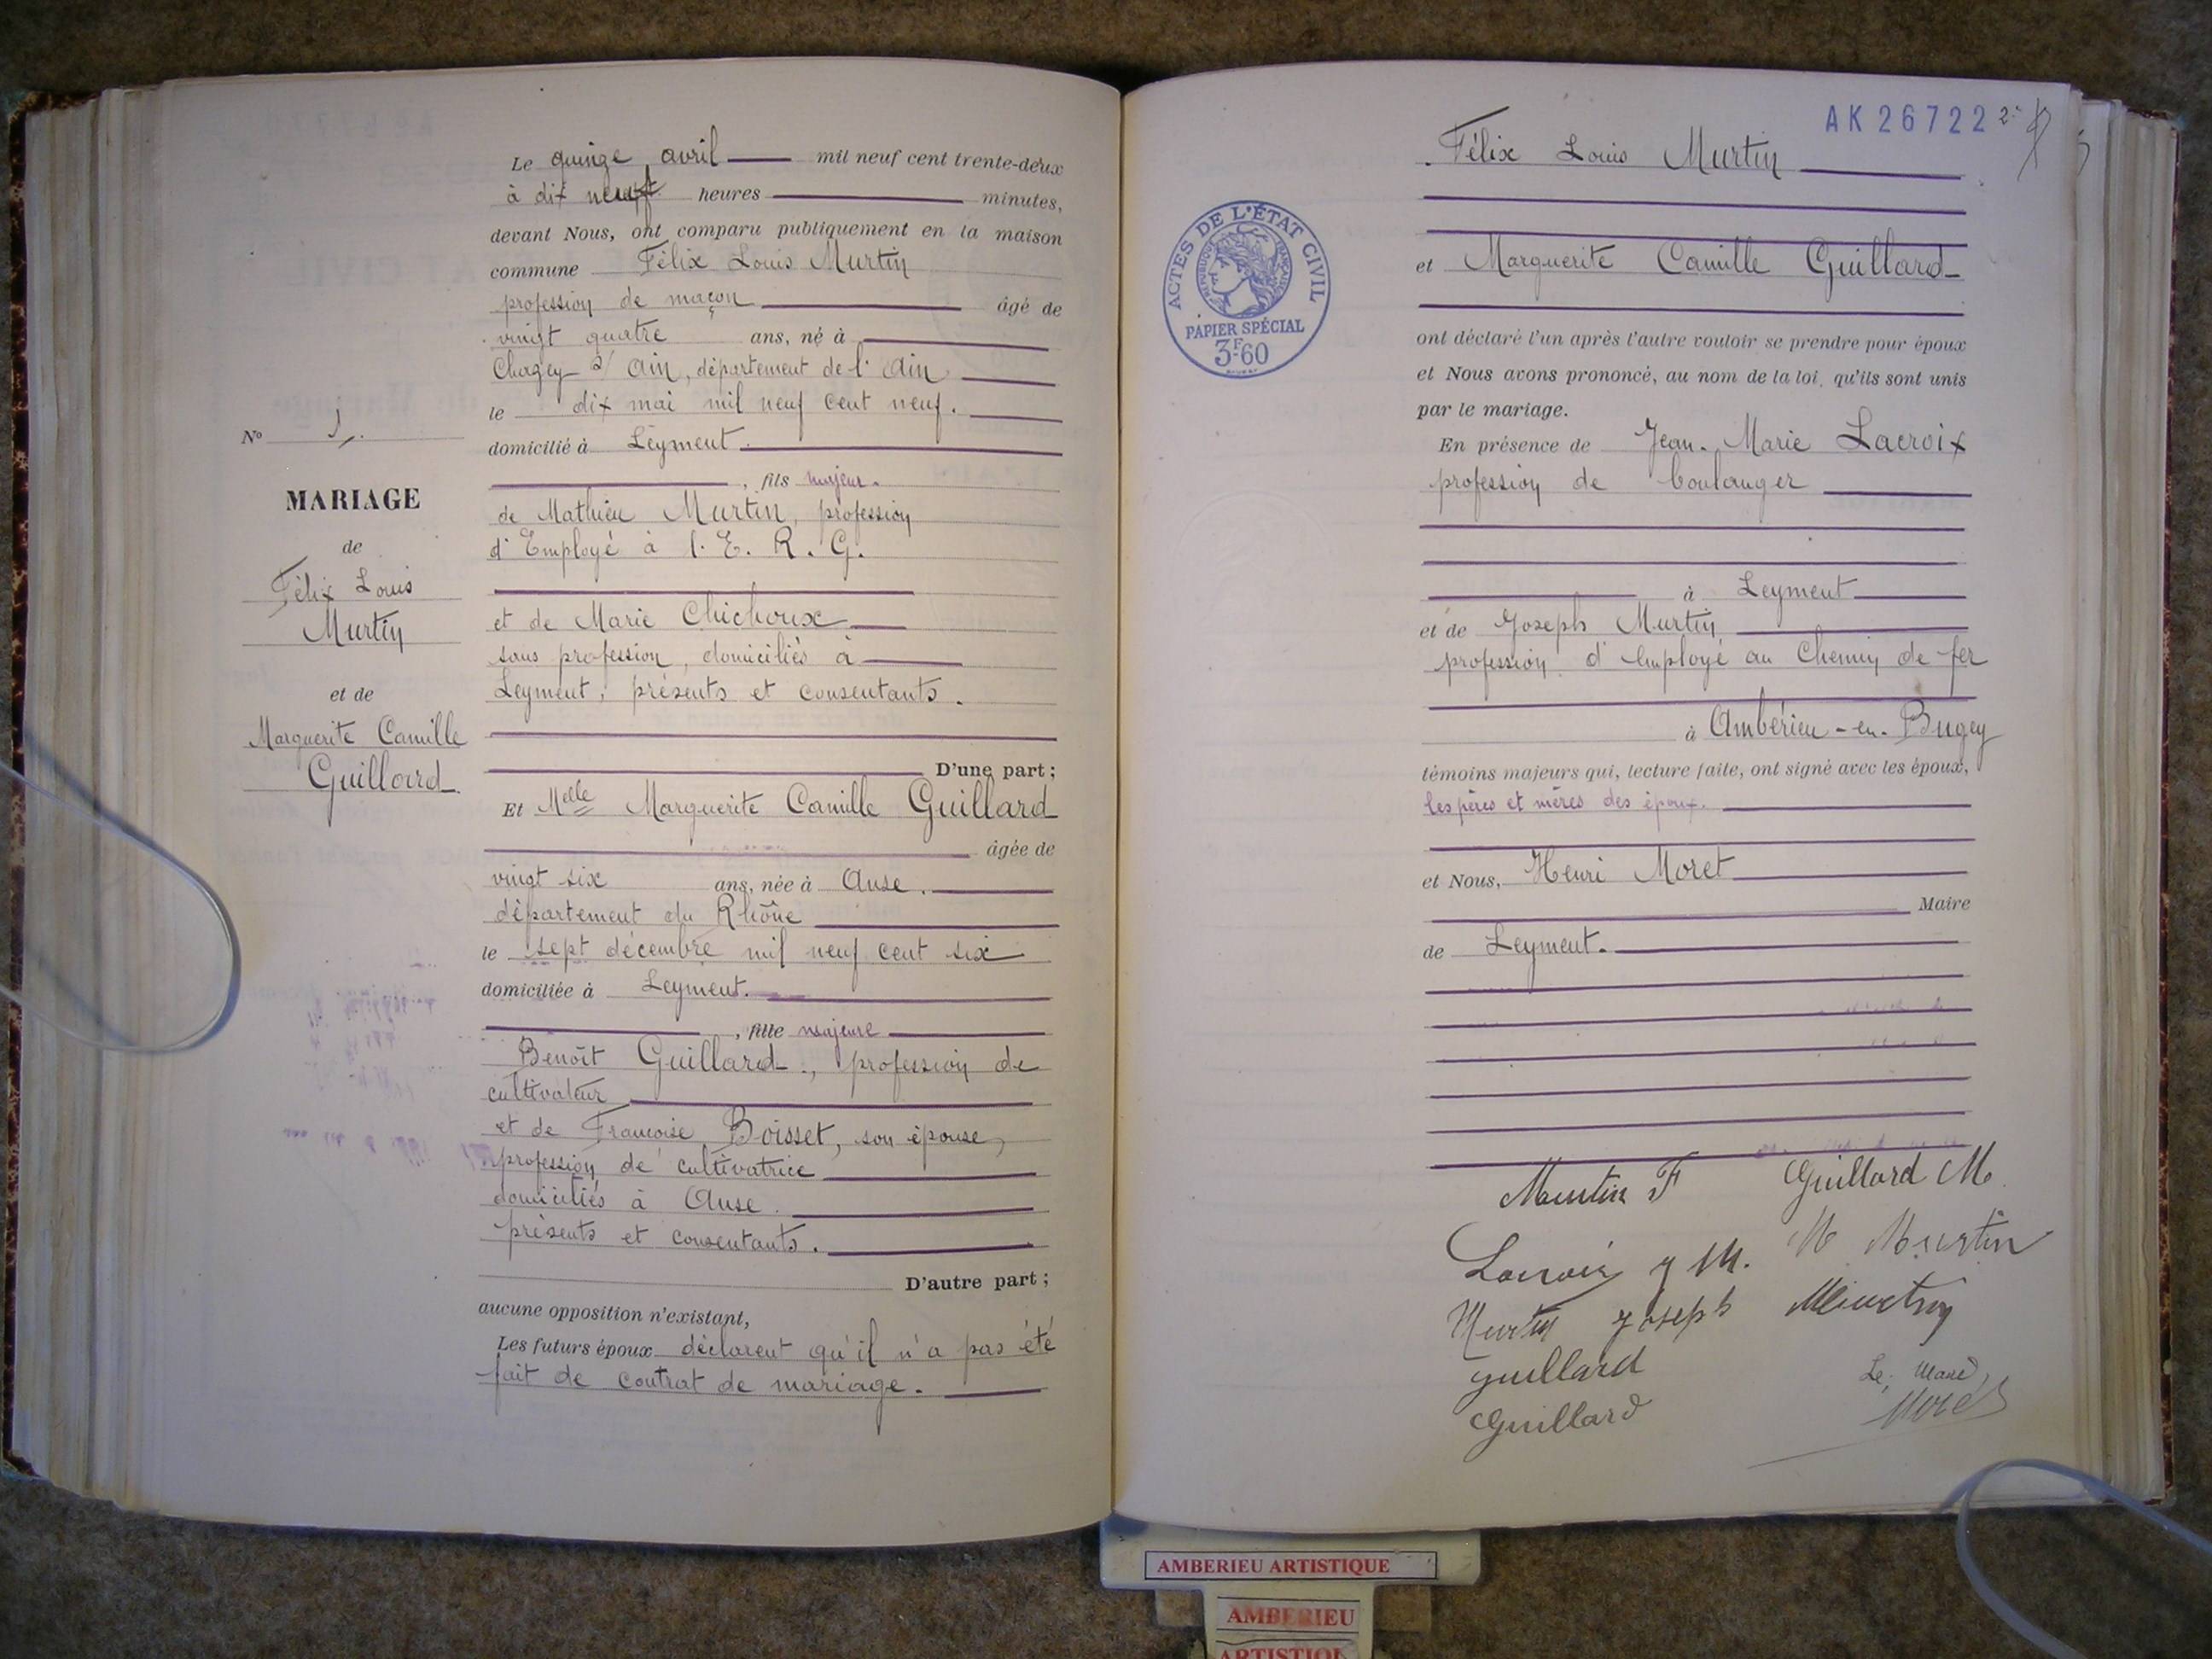 Le quinze avril mil neuf cent trente-deux
à dix neuf heures minutes,
devant Nous, ont comparu publiquement en la maison
commune Félix Louis Murtin
profession de maçon âgé de
vingt quatre ans, né à
Chazey s/ Ain, département de l'Ain
le dix mai mil neuf cent neuf.
domicilié à Leyment.
, fils majeur.
de Mathieu Murtin, profession
d'Employé à l'E. R. G.
et de Marie Chichoux
sans profession, domiciliés à
Leyment, présents et consentants.
D'une part ;
Et Melle Marguerite Camille Guillard
âgée de
vingt six ans, née à Anse.
département du Rhône
le sept décembre mil neuf cent six
domiciliée à Leyment.
, fille majeure
Benoît Guillard, profession de
cultivateur
et de Françoise Boisset, son épouse,
profession de cultivatrice
domiciliés à Anse.
présents et consentants.
D'autre part ;
aucune opposition n'existant,
Les futurs époux déclarent qu'il n'a pas été
fait de contrat de mariage.
No
MARIAGE
de
Félix Louis
Murtin
et de
Marguerite Camille
Guillard
AK 26722
Félix Louis Murtin
et Marguerite Camille Guillard
ont déclaré l'un après l'autre vouloir se prendre pour époux
et Nous avons prononcé, au nom de la loi, qu'ils sont unis
par le mariage.
En présence de Jean-Marie Lacroix
profession de boulanger
à Leyment
et de Joseph Murtin,
profession d'employé au Chemin de fer
à Ambérieu-en-Bugey
témoins majeurs qui, lecture faite, ont signé avec les époux,
les pères et mères des époux.
et Nous, Henri Moret
Maire
de Leyment.
Murtin F Guillard M
Lacroix J M. M Murtin
Murtin Joseph
Guillard
Guillard
Le Maire,
Moret
ACTES DE L'ÉTAT CIVIL
RÉPUBLIQUE FRANÇAISE
PAPIER SPÉCIAL
3F60
AMBERIEU ARTISTIQUE
AMBERIEU
ARTISTIQUE